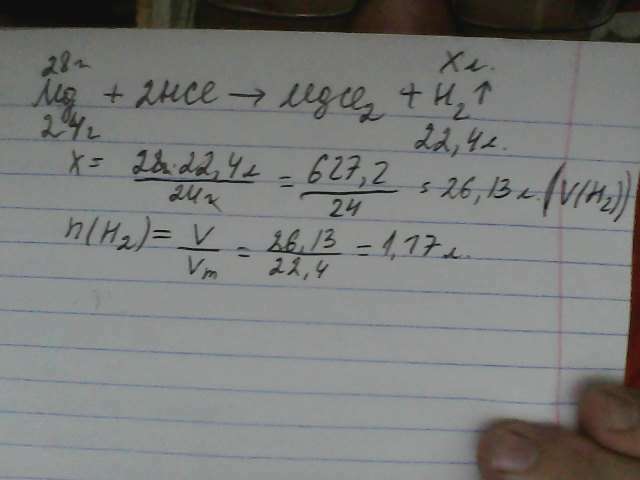 28г Xл.
Mg + 2HCl → MgCl₂ + H₂↑
24г 22,4л.
X = 28г·22,4л/24г = 627,2/24 = 26,13л. (V(H₂))
n(H₂) = V/Vm = 26,13/22,4 = 1,17л.